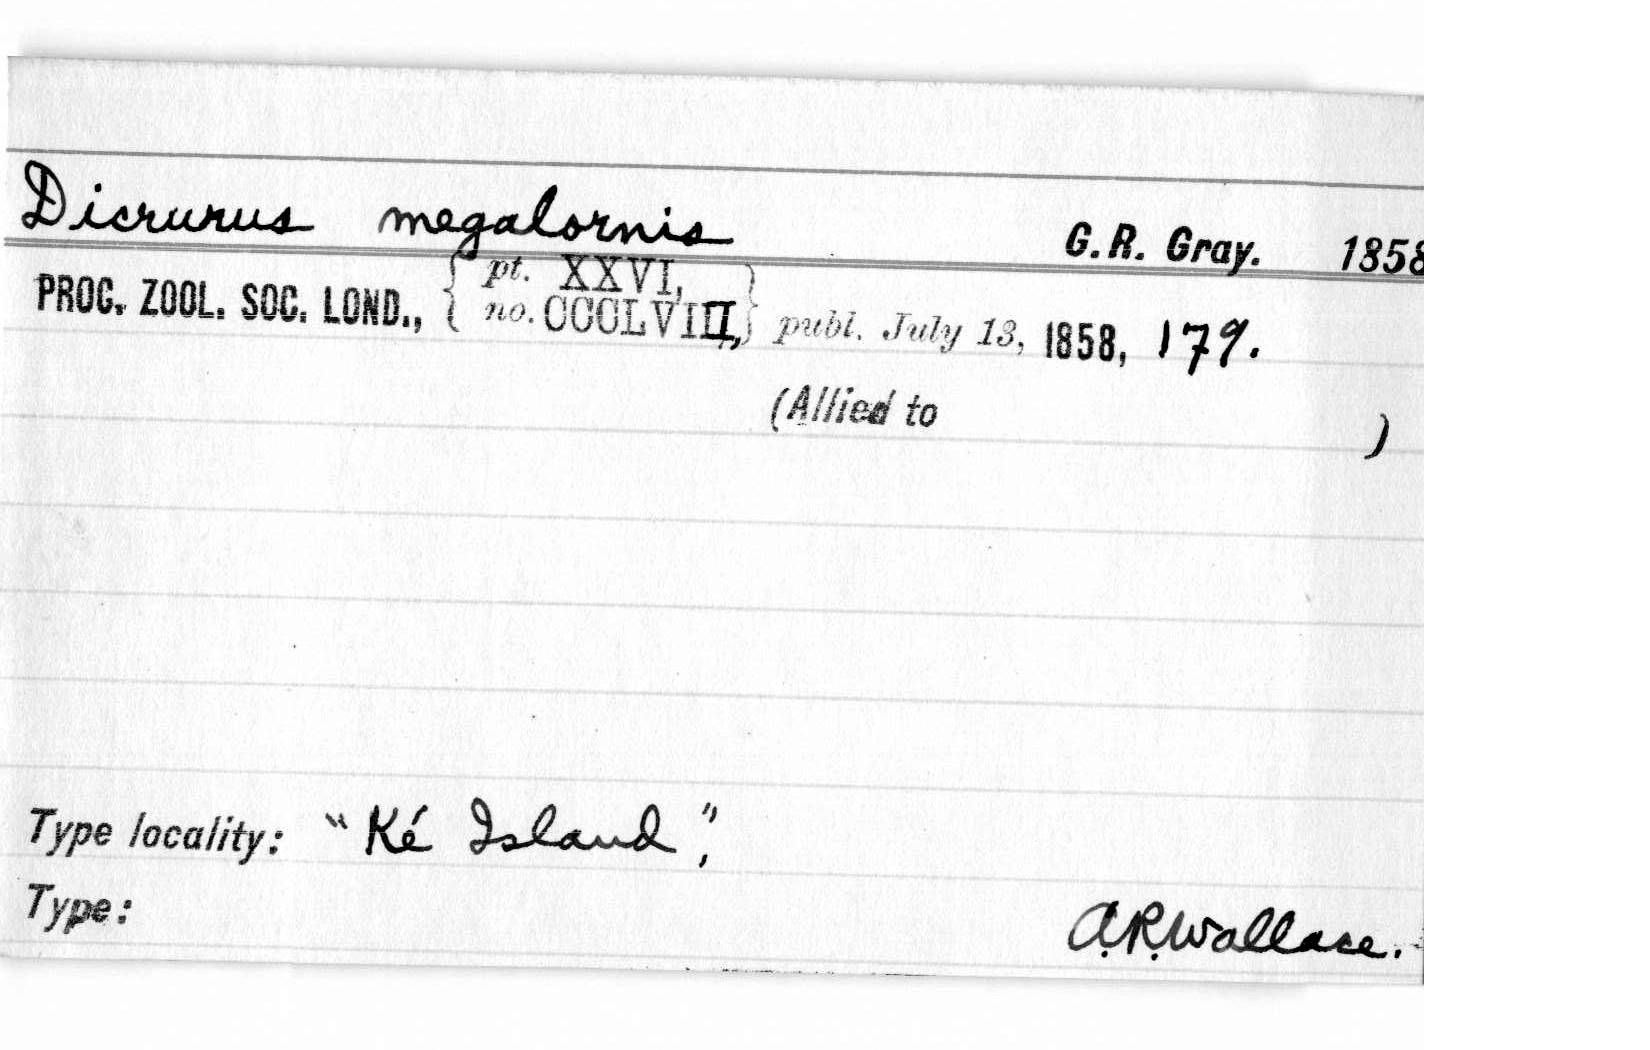 Dicrurus megalornis G.R. Gray. 1858
PROC. ZOOL. SOC. LOND., { pt. XXVI, no. CCCLVIII, } publ. July 13, 1858, 179.
(Allied to )
Type locality: "Ké Island",
Type: A.R.Wallace.